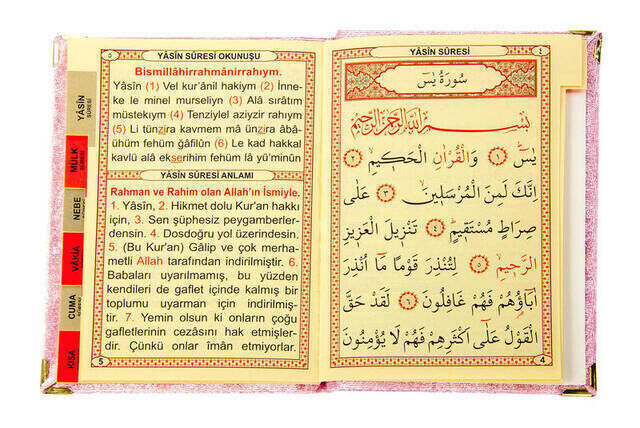 YÂSİN SÛRESİ
٤
سُورَةُ يٰسٓ
بِسْمِ اللّٰهِ الرَّحْمٰنِ الرَّحِيمِ
يٰسٓ ﴿١﴾ وَالْقُرْاٰنِ الْحَكِيمِ ﴿٢﴾
اِنَّكَ لَمِنَ الْمُرْسَلِينَ ﴿٣﴾ عَلٰى
صِرَاطٍ مُسْتَقِيمٍ ﴿٤﴾ تَنْزِيلَ الْعَزِيزِ
الرَّحِيمِ ﴿٥﴾ لِتُنْذِرَ قَوْمًا مَٓا اُنْذِرَ
اٰبَٓاؤُ۬هُمْ فَهُمْ غَافِلُونَ ﴿٦﴾ لَقَدْ حَقَّ
الْقَوْلُ عَلٰٓى اَكْثَرِهِمْ فَهُمْ لَا يُؤْمِنُونَ
4
٥
YÂSİN SÛRESİ OKUNUŞU
Bismillâhirrahmânirrahıym.
Yâsîn (1) Vel kur'ânil hakiym (2) İnne-
ke le minel murseliyn (3) Alâ sırâtım
müstekıym (4) Tenziylel aziyzir rahıym
(5) Li tünzira kavmem mâ ünzira âbâ-
ühüm fehüm ğâfilûn (6) Le kad hakkal
kavlü alâ ekserihim fehüm lâ yü'minûn
YÂSİN SÛRESİ ANLAMI
Rahman ve Rahim olan Allah'ın İsmiyle.
1. Yâsîn, 2. Hikmet dolu Kur'an hakkı
için, 3. Sen şüphesiz peygamberler-
densin. 4. Dosdoğru yol üzerindesin.
5. (Bu Kur'an) Gâlip ve çok merha-
metli Allah tarafından indirilmiştir. 6.
Babaları uyarılmamış, bu yüzden
kendileri de gaflet içinde kalmış bir
toplumu uyarman için indirilmiş-
tir. 7. Yemin olsun ki onların çoğu
gafletlerinin cezasını hak etmişler-
dir. Çünkü onlar îman etmiyorlar.
5
YÂSİN
SÛRESİ
MÜLK
SÛRESİ
NEBE
VÂKIA
CUMA
KISA